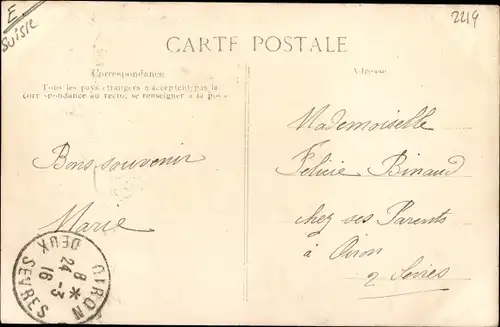 E.
Suisse
2219
CARTE POSTALE
Correspondance
Tous les pays étrangers n'acceptent pas la
correspondance au recto, se renseigner à la poste
Adresse
Bons souvenir
Marie
Mademoiselle
Félicie Binaud
chez ses Parents
à Oiron
2 Sèvres
OIRON
8 *
24 -3
16
DEUX SEVRES